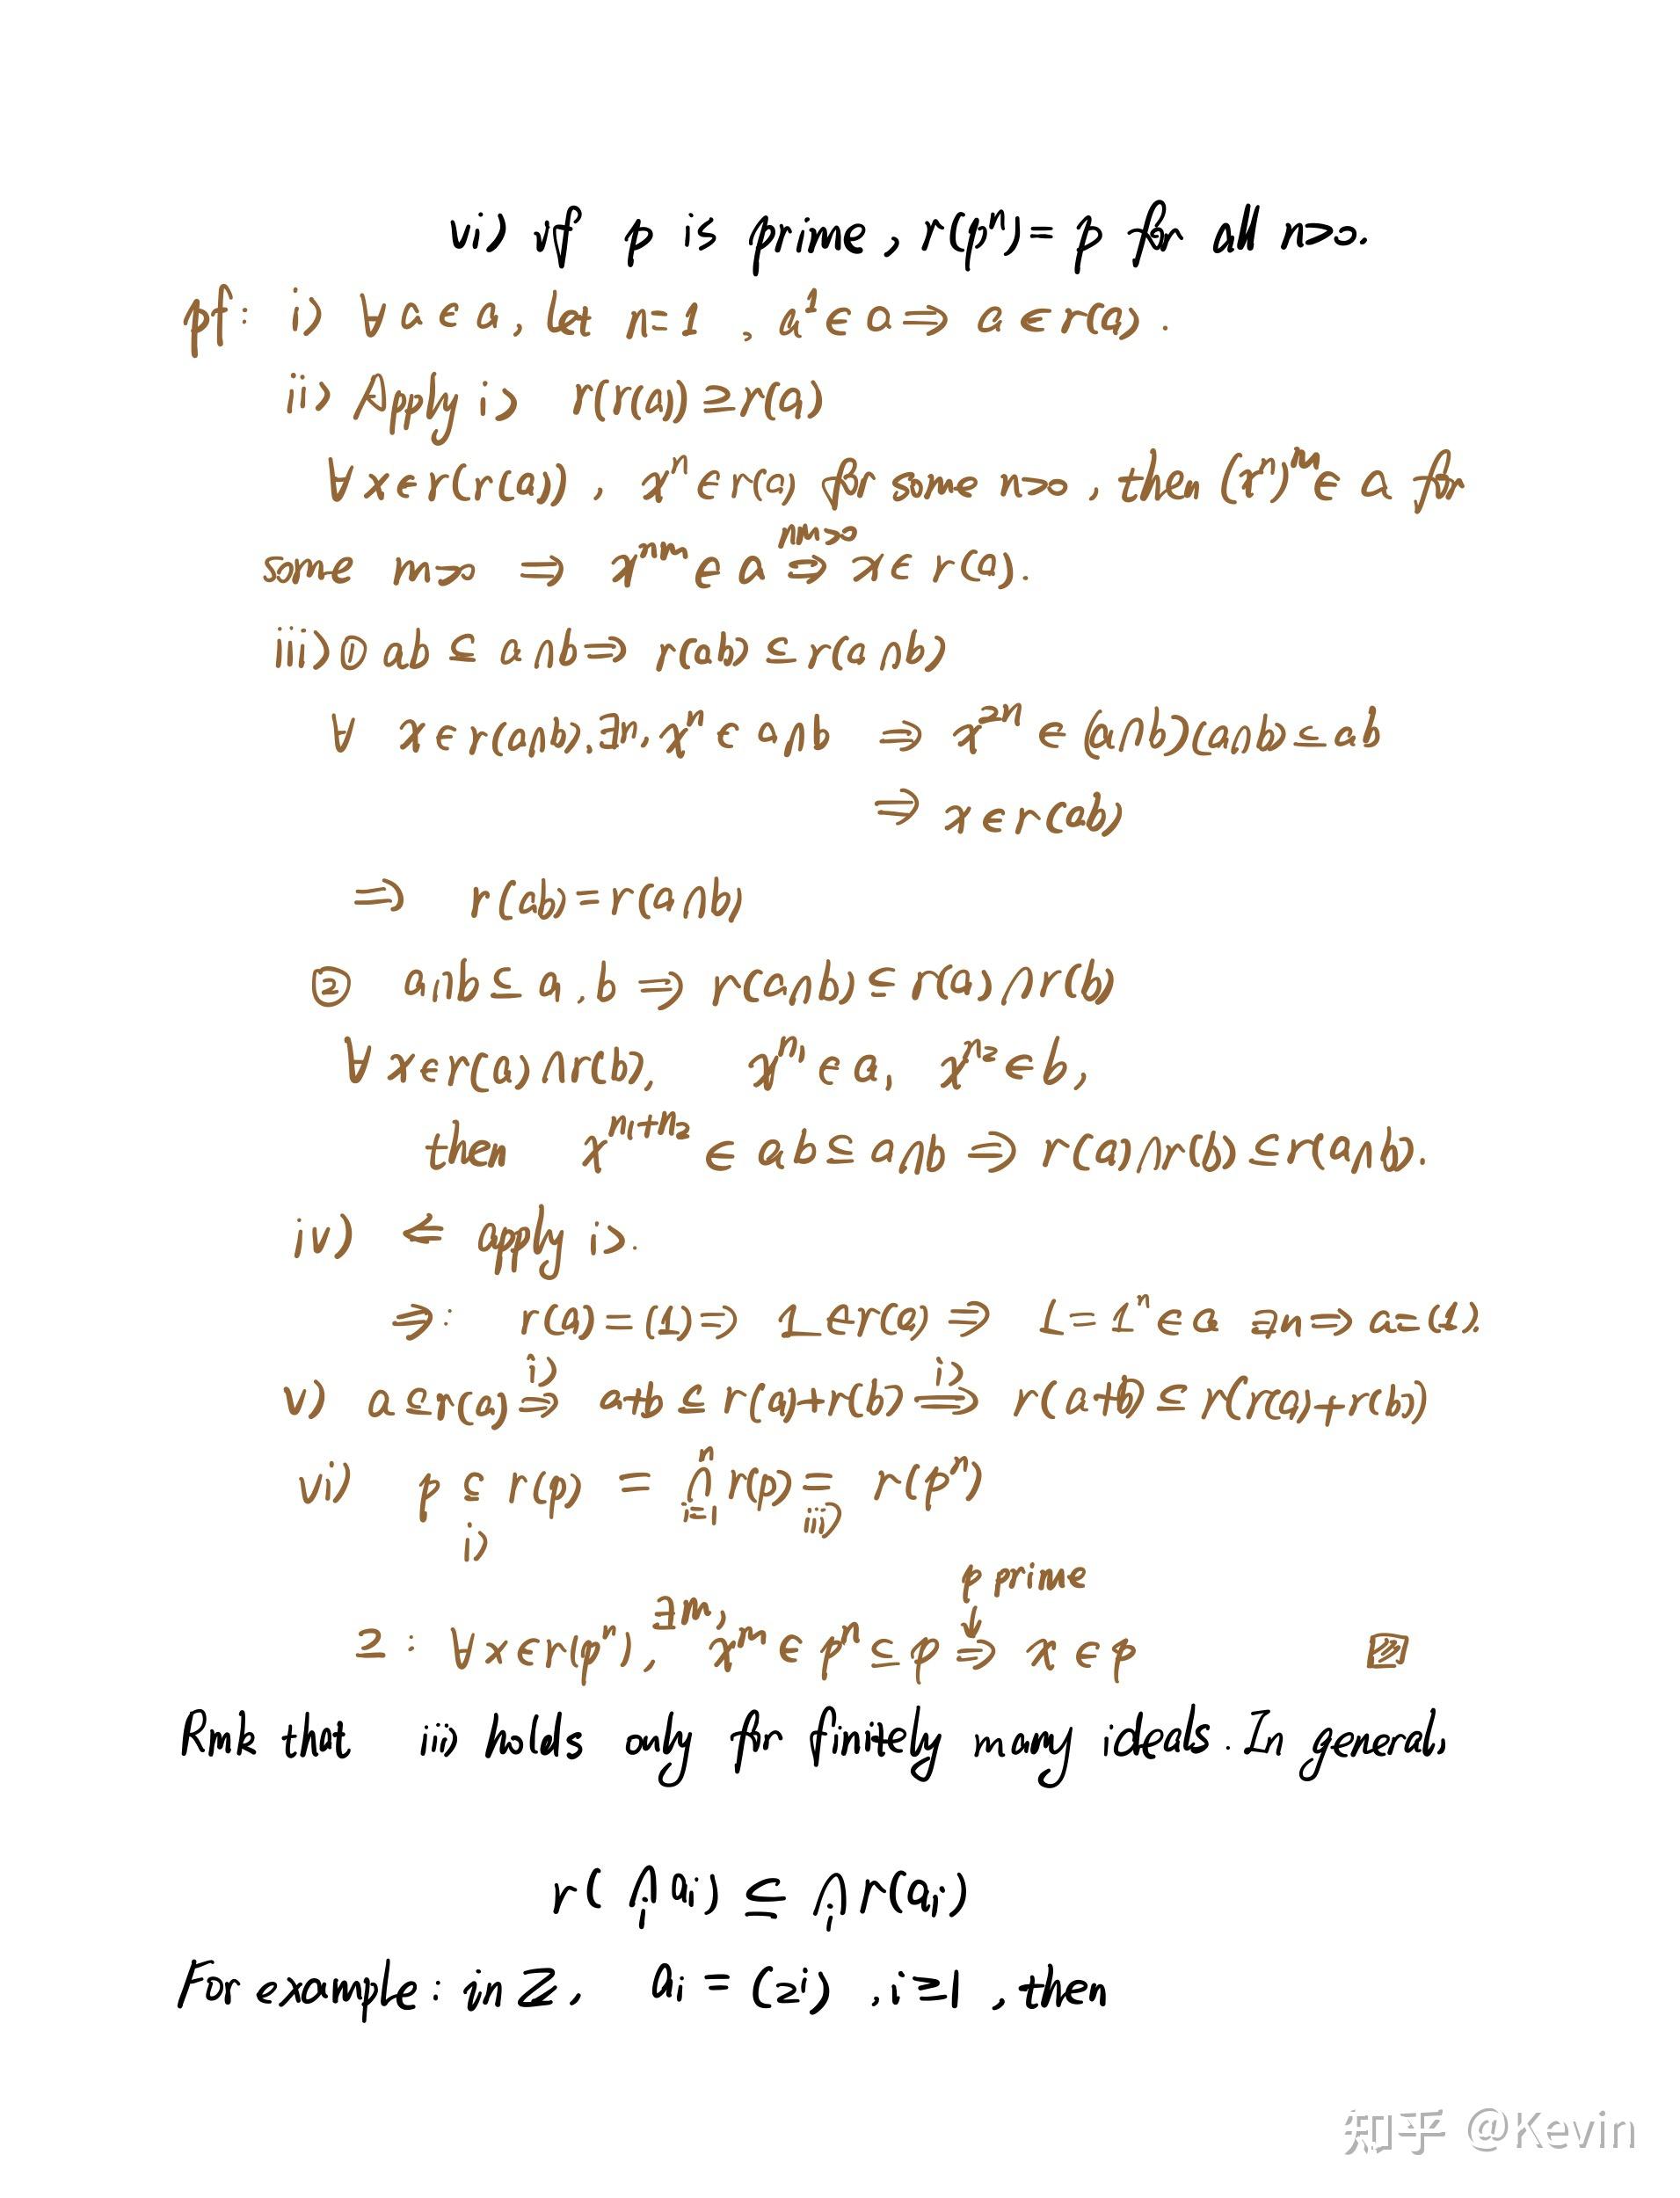 vi) if p is prime, r(pⁿ) = p for all n>0.
pf: i) ∀ a ∈ a, let n=1, a¹ ∈ a ⇒ a ∈ r(a).
ii) Apply i) r(r(a)) ⊇ r(a)
∀ x ∈ r(r(a)), xⁿ ∈ r(a) for some n>0, then (xⁿ)ᵐ ∈ a for
some m>0 ⇒ xⁿᵐ ∈ a ⇒ (nm>0) x ∈ r(a).
iii) ① ab ⊆ a∩b ⇒ r(ab) ⊆ r(a∩b)
∀ x ∈ r(a∩b), ∃n, xⁿ ∈ a∩b ⇒ x²ⁿ ∈ (a∩b)(a∩b) ⊆ ab
⇒ x ∈ r(ab)
⇒ r(ab) = r(a∩b)
② a∩b ⊆ a, b ⇒ r(a∩b) ⊆ r(a) ∩ r(b)
∀ x ∈ r(a) ∩ r(b), x^{n₁} ∈ a, x^{n₂} ∈ b,
then x^{n₁+n₂} ∈ ab ⊆ a∩b ⇒ r(a)∩r(b) ⊆ r(a∩b).
iv) ⇐ apply i).
⇒: r(a) = (1) ⇒ 1 ∈ r(a) ⇒ 1 = 1ⁿ ∈ a ∃n ⇒ a = (1).
v) a ⊆ r(a) ⇒^{i)} a+b ⊆ r(a)+r(b) ⇒^{i)} r(a+b) ⊆ r(r(a)+r(b))
vi) p ⊆_{i)} r(p) = ∩_{i=1}^{n} r(p) =_{iii)} r(pⁿ)
p prime
⊇: ∀ x ∈ r(pⁿ), ∃m, xᵐ ∈ pⁿ ⊆ p ⇒ x ∈ p
Rmk that iii) holds only for finitely many ideals. In general,
r(∩_i a_i) ⊆ ∩_i r(a_i)
For example: in Z, a_i = (2^i), i≥1, then
知乎 @Kevin